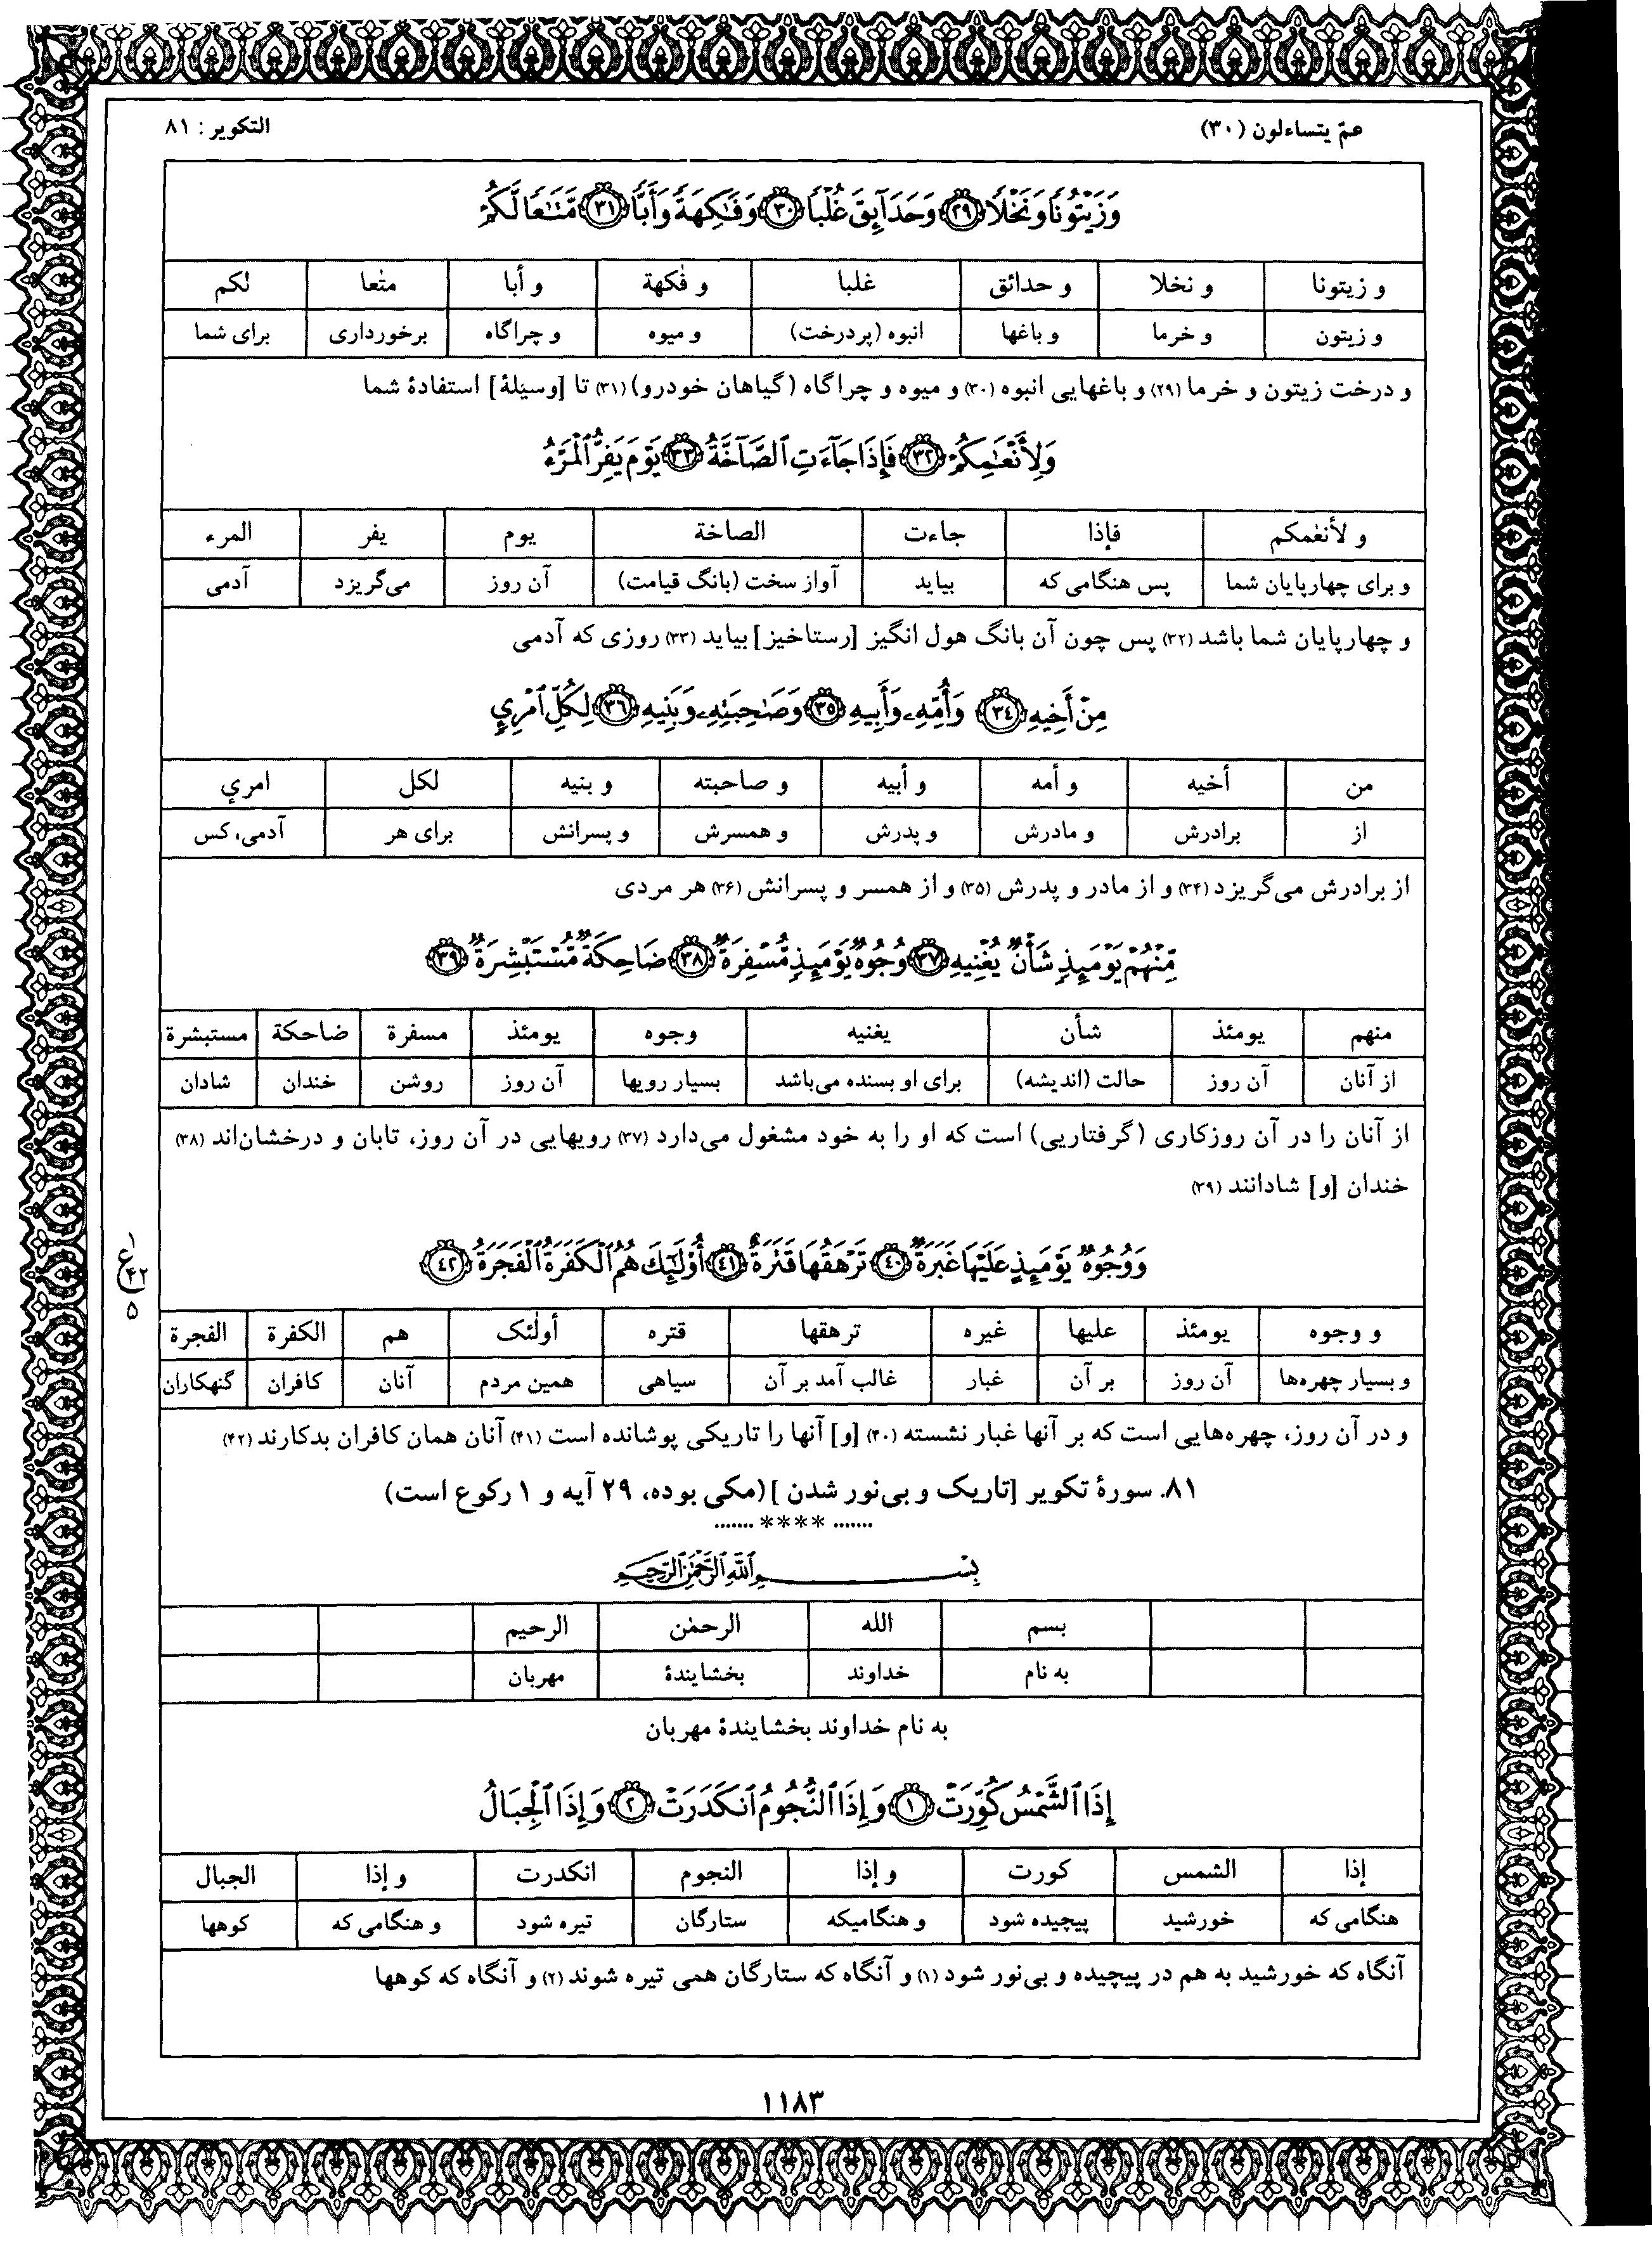 عمّ یتساءلون (۳۰)
التکویر : ۸۱
وَزَيْتُونًا وَنَخْلًا ﴿٢٩﴾ وَحَدَآئِقَ غُلْبًا ﴿٣٠﴾ وَفَٰكِهَةً وَأَبًّا ﴿٣١﴾ مَّتَٰعًا لَّكُمْ
و زیتونا | و نخلا | و حدائق | غلبا | و فٰکهة | و أبا | متٰعا | لکم
و زیتون | و خرما | و باغها | انبوه (پردرخت) | و میوه | و چراگاه | برخورداری | برای شما
و درخت زیتون و خرما (۲۹) و باغهایی انبوه (۳۰) و میوه و چراگاه (گیاهان خودرو) (۳۱) تا [وسیلهٔ] استفادهٔ شما
وَلِأَنْعَٰمِكُمْ ﴿٣٢﴾ فَإِذَا جَآءَتِ ٱلصَّآخَّةُ ﴿٣٣﴾ يَوْمَ يَفِرُّ ٱلْمَرْءُ
و لأنعٰمکم | فإذا | جاءت | الصاخة | یوم | یفر | المرء
و برای چهارپایان شما | پس هنگامی که | بیاید | آواز سخت (بانگ قیامت) | آن روز | می‌گریزد | آدمی
و چهارپایان شما باشد (۳۲) پس چون آن بانگ هول انگیز [رستاخیز] بیاید (۳۳) روزی که آدمی
مِنْ أَخِيهِ ﴿٣٤﴾ وَأُمِّهِۦ وَأَبِيهِ ﴿٣٥﴾ وَصَٰحِبَتِهِۦ وَبَنِيهِ ﴿٣٦﴾ لِكُلِّ ٱمْرِيٍٕ
من | أخیه | و أمه | و أبیه | و صاحبته | و بنیه | لکل | امریٍ
از | برادرش | و مادرش | و پدرش | و همسرش | و پسرانش | برای هر | آدمی، کس
از برادرش می‌گریزد (۳۴) و از مادر و پدرش (۳۵) و از همسر و پسرانش (۳۶) هر مردی
مِّنْهُمْ يَوْمَئِذٍ شَأْنٌ يُغْنِيهِ ﴿٣٧﴾ وُجُوهٌ يَوْمَئِذٍ مُّسْفِرَةٌ ﴿٣٨﴾ ضَاحِكَةٌ مُّسْتَبْشِرَةٌ ﴿٣٩﴾
منهم | یومئذ | شأن | یغنیه | وجوه | یومئذ | مسفرة | ضاحکة | مستبشرة
از آنان | آن روز | حالت (اندیشه) | برای او بسنده می‌باشد | بسیار رویها | آن روز | روشن | خندان | شادان
از آنان را در آن روزکاری (گرفتاریی) است که او را به خود مشغول می‌دارد (۳۷) رویهایی در آن روز، تابان و درخشان‌اند (۳۸)
خندان [و] شادانند (۳۹)
وَوُجُوهٌ يَوْمَئِذٍ عَلَيْهَا غَبَرَةٌ ﴿٤٠﴾ تَرْهَقُهَا قَتَرَةٌ ﴿٤١﴾ أُوْلَٰٓئِكَ هُمُ ٱلْكَفَرَةُ ٱلْفَجَرَةُ ﴿٤٢﴾
۱
ع
۴۲
۵
و وجوه | یومئذ | علیها | غیره | ترهقها | قتره | أولٰئک | هم | الکفرة | الفجرة
و بسیار چهره‌ها | آن روز | بر آن | غبار | غالب آمد بر آن | سیاهی | همین مردم | آنان | کافران | گنهکاران
و در آن روز، چهره‌هایی است که بر آنها غبار نشسته (۴۰) [و] آنها را تاریکی پوشانده است (۴۱) آنان همان کافران بدکارند (۴۲)
۸۱. سورهٔ تکویر [تاریک و بی‌نور شدن ] (مکی بوده، ۲۹ آیه و ۱ رکوع است)
....... **** .......
بِسْمِ ٱللَّهِ ٱلرَّحْمَٰنِ ٱلرَّحِيمِ
بسم | الله | الرحمٰن | الرحیم
به نام | خداوند | بخشایندهٔ | مهربان
به نام خداوند بخشایندهٔ مهربان
إِذَا ٱلشَّمْسُ كُوِّرَتْ ﴿١﴾ وَإِذَا ٱلنُّجُومُ ٱنكَدَرَتْ ﴿٢﴾ وَإِذَا ٱلْجِبَالُ
إذا | الشمس | کورت | و إذا | النجوم | انکدرت | و إذا | الجبال
هنگامی که | خورشید | پیچیده شود | و هنگامیکه | ستارگان | تیره شود | و هنگامی که | کوهها
آنگاه که خورشید به هم در پیچیده و بی‌نور شود (۱) و آنگاه که ستارگان همی تیره شوند (۲) و آنگاه که کوهها
۱۱۸۳